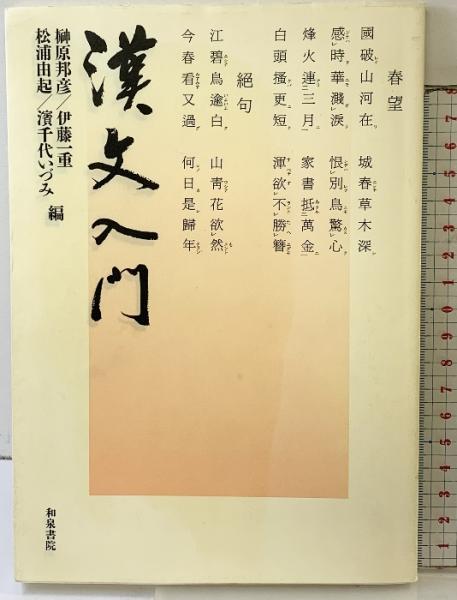 春望
國破山河在 城春草木深
感時華濺淚 恨別鳥驚心
烽火連三月 家書抵萬金
白頭搔更短 渾欲不勝簪
絕句
江碧鳥逾白 山靑花欲然
今春看又過 何日是歸年
漢文入門
榊原邦彦／伊藤一重
松浦由起／濱千代いづみ 編
和泉書院